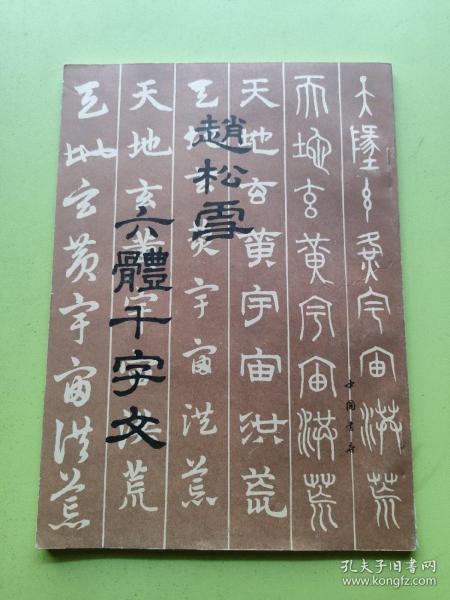 天墬玄黃宇宙洪荒
天地玄黃宇宙洪荒
天地玄黃宇宙洪荒
天地玄黃宇宙洪荒
天地玄黃宇宙洪荒
天地玄黃宇宙洪荒
趙松雪
六體千字文
中国書店
孔夫子旧书网
www.kongfz.com